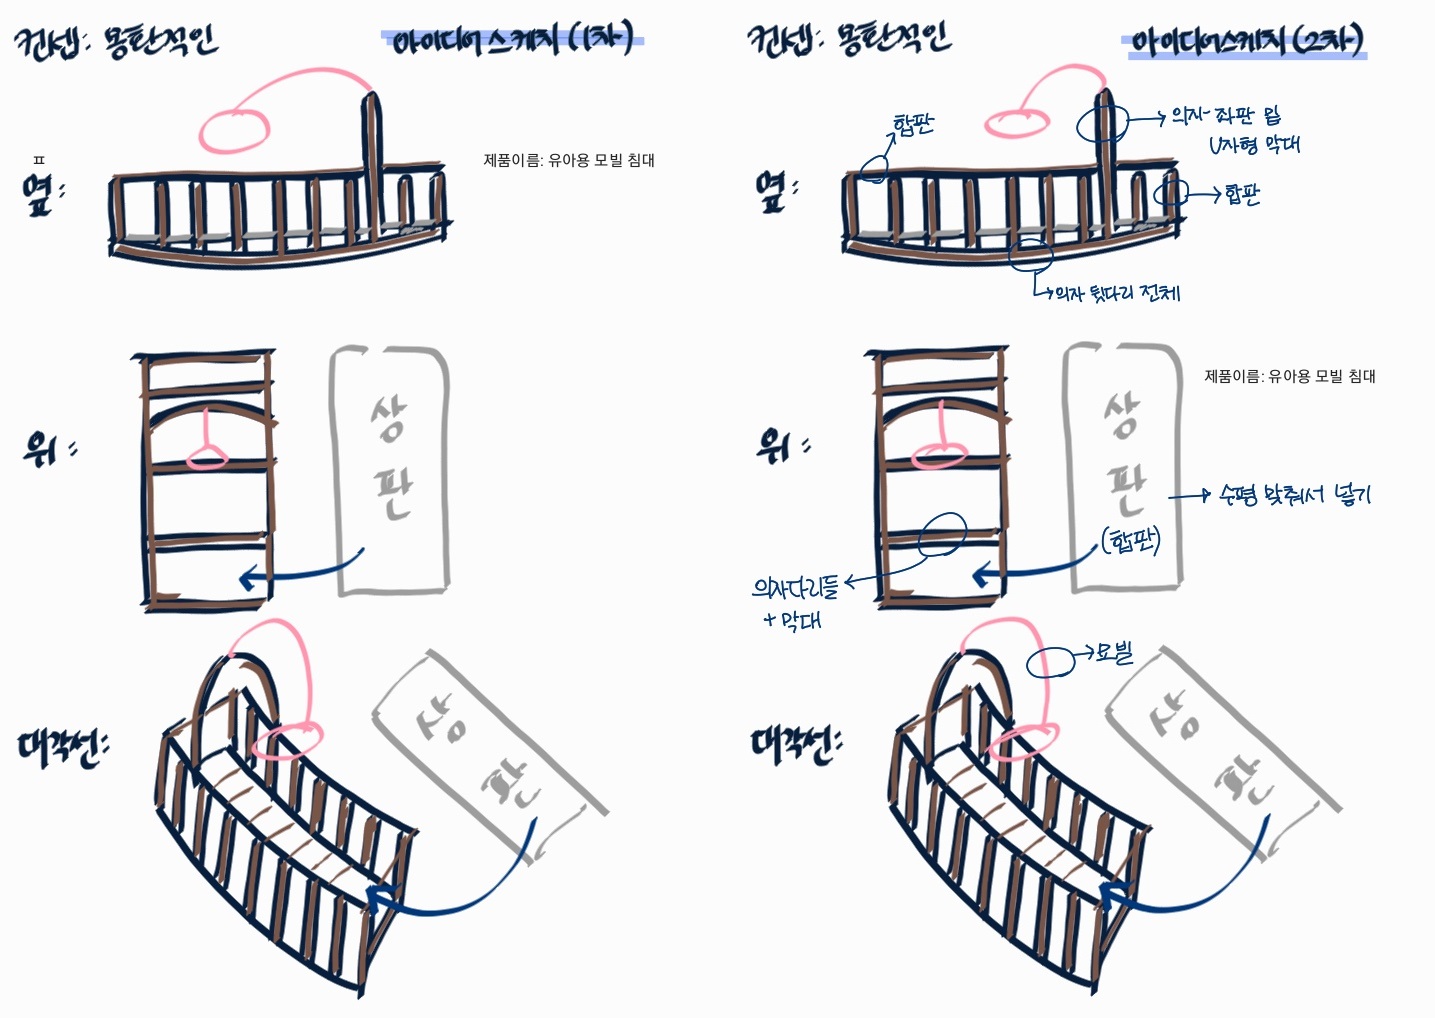 컨셉: 몽환적인
아이디어 스케치 (1차)
ㅍ
옆:
제품이름: 유아용 모빌 침대
위:
상
판
대각선:
상
판
컨셉: 몽환적인
아이디어스케치 (2차)
합판
의자 좌판 밑
U자형 막대
옆:
합판
의자 뒷다리 전체
제품이름: 유아용 모빌 침대
위:
상
판
(합판)
수평 맞춰서 넣기
의자다리들
+ 막대
모빌
대각선:
상
판